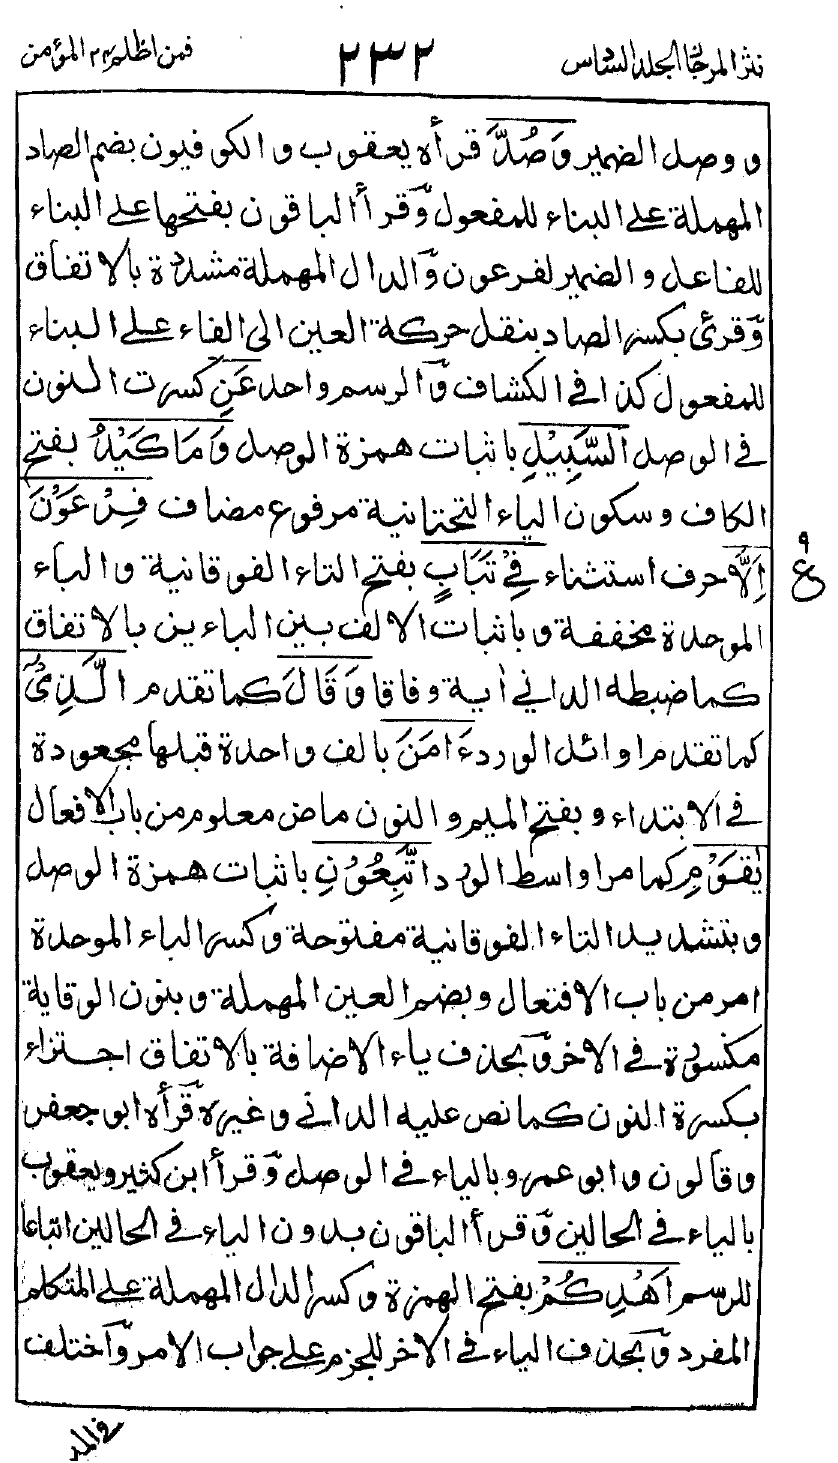 نثر المرجان الجلد السادس ٢٣٢ فمن اظلم ٢٤ المؤمن
و وصل الضمير وَصُدَّ قرأه يعقوب والكوفيون بضم الصاد
المهملة على البناء للمفعول وقرأ الباقون بفتحها على البناء
للفاعل والضمير لفرعون والدال المهملة مشددة بالاتفاق
وقرئ بكسر الصاد بنقل حركة العين الى الفاء على البناء
للمفعول كذا في الكشاف والرسم واحد عَنِ كسرت النون
في الوصل السَّبِيْلِ باثبات همزة الوصل وَمَا كَيْدُ بفتح
الكاف وسكون الياء التحتانية مرفوع مضاف فِرْعَوْنَ
اِلَّا حرف استثناء فِيْ تَبَابٍ بفتح التاء الفوقانية والباء
الموحدة مخففة وباثبات الالف بين البائين بالاتفاق
كما ضبطه الداني أية وفاقا وَقَالَ كما تقدم الَّذِيْ
كما تقدم اوائل الورد ءَامَنَ بالف واحدة قبلها مجعودة
في الابتداء وبفتح الميم والنون ماض معلوم من باب الافعال
يٰقَوْمِ كما مر اواسط الورد اتَّبِعُوْنِ باثبات همزة الوصل
وبتشديد التاء الفوقانية مفتوحة وكسر الباء الموحدة
امر من باب الافتعال وبضم العين المهملة وبنون الوقاية
مكسورة في الاخر وبحذف ياء الاضافة بالاتفاق اجتزاء
بكسرة النون كما نص عليه الداني وغيره قرأه ابو جعفر
وقالون وابو عمرو بالياء في الوصل وقرأ ابن كثير ويعقوب
بالياء في الحالين وقرأ الباقون بدون الياء في الحالين اتباعا
للرسم اَهْدِكُمْ بفتح الهمزة وكسر الدال المهملة على المتكلم
المفرد وبحذف الياء في الاخر للجزم على جواب الامر واختلف
ع ٩